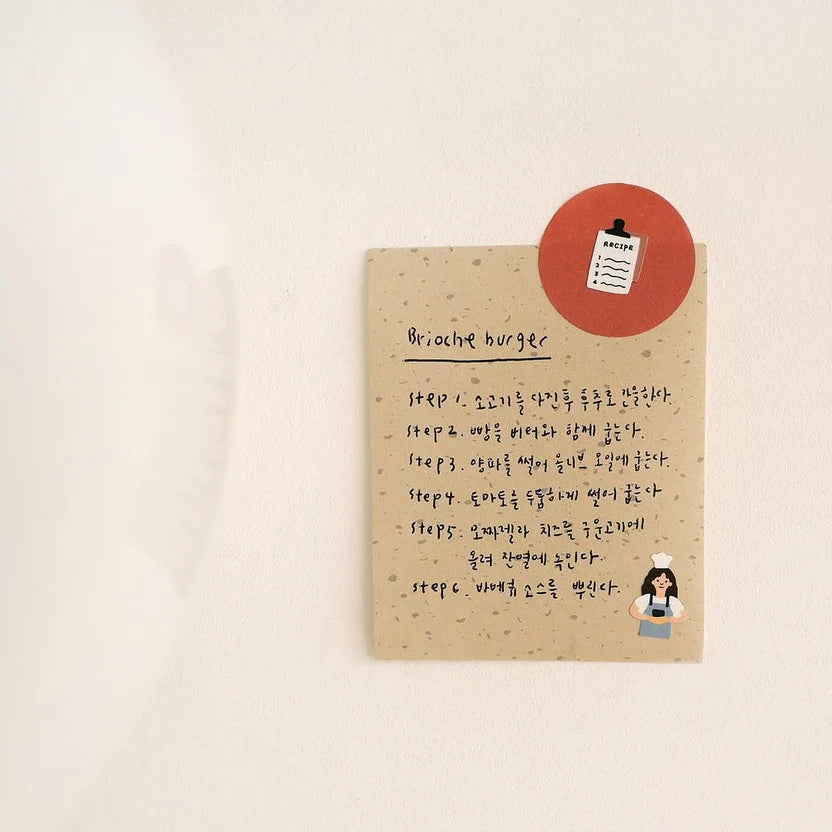 RECIPE
1
2
3
4
Brioche burger
step 1. 소고기를 다진 후 후추로 간을 한다.
step 2. 빵을 버터와 함께 굽는다.
step 3. 양파를 썰어 올리브 오일에 굽는다.
step 4. 토마토를 두툼하게 썰어 굽는다
step 5. 모짜렐라 치즈를 구운고기에
올려 잔열에 녹인다.
step 6. 바베큐 소스를 뿌린다.